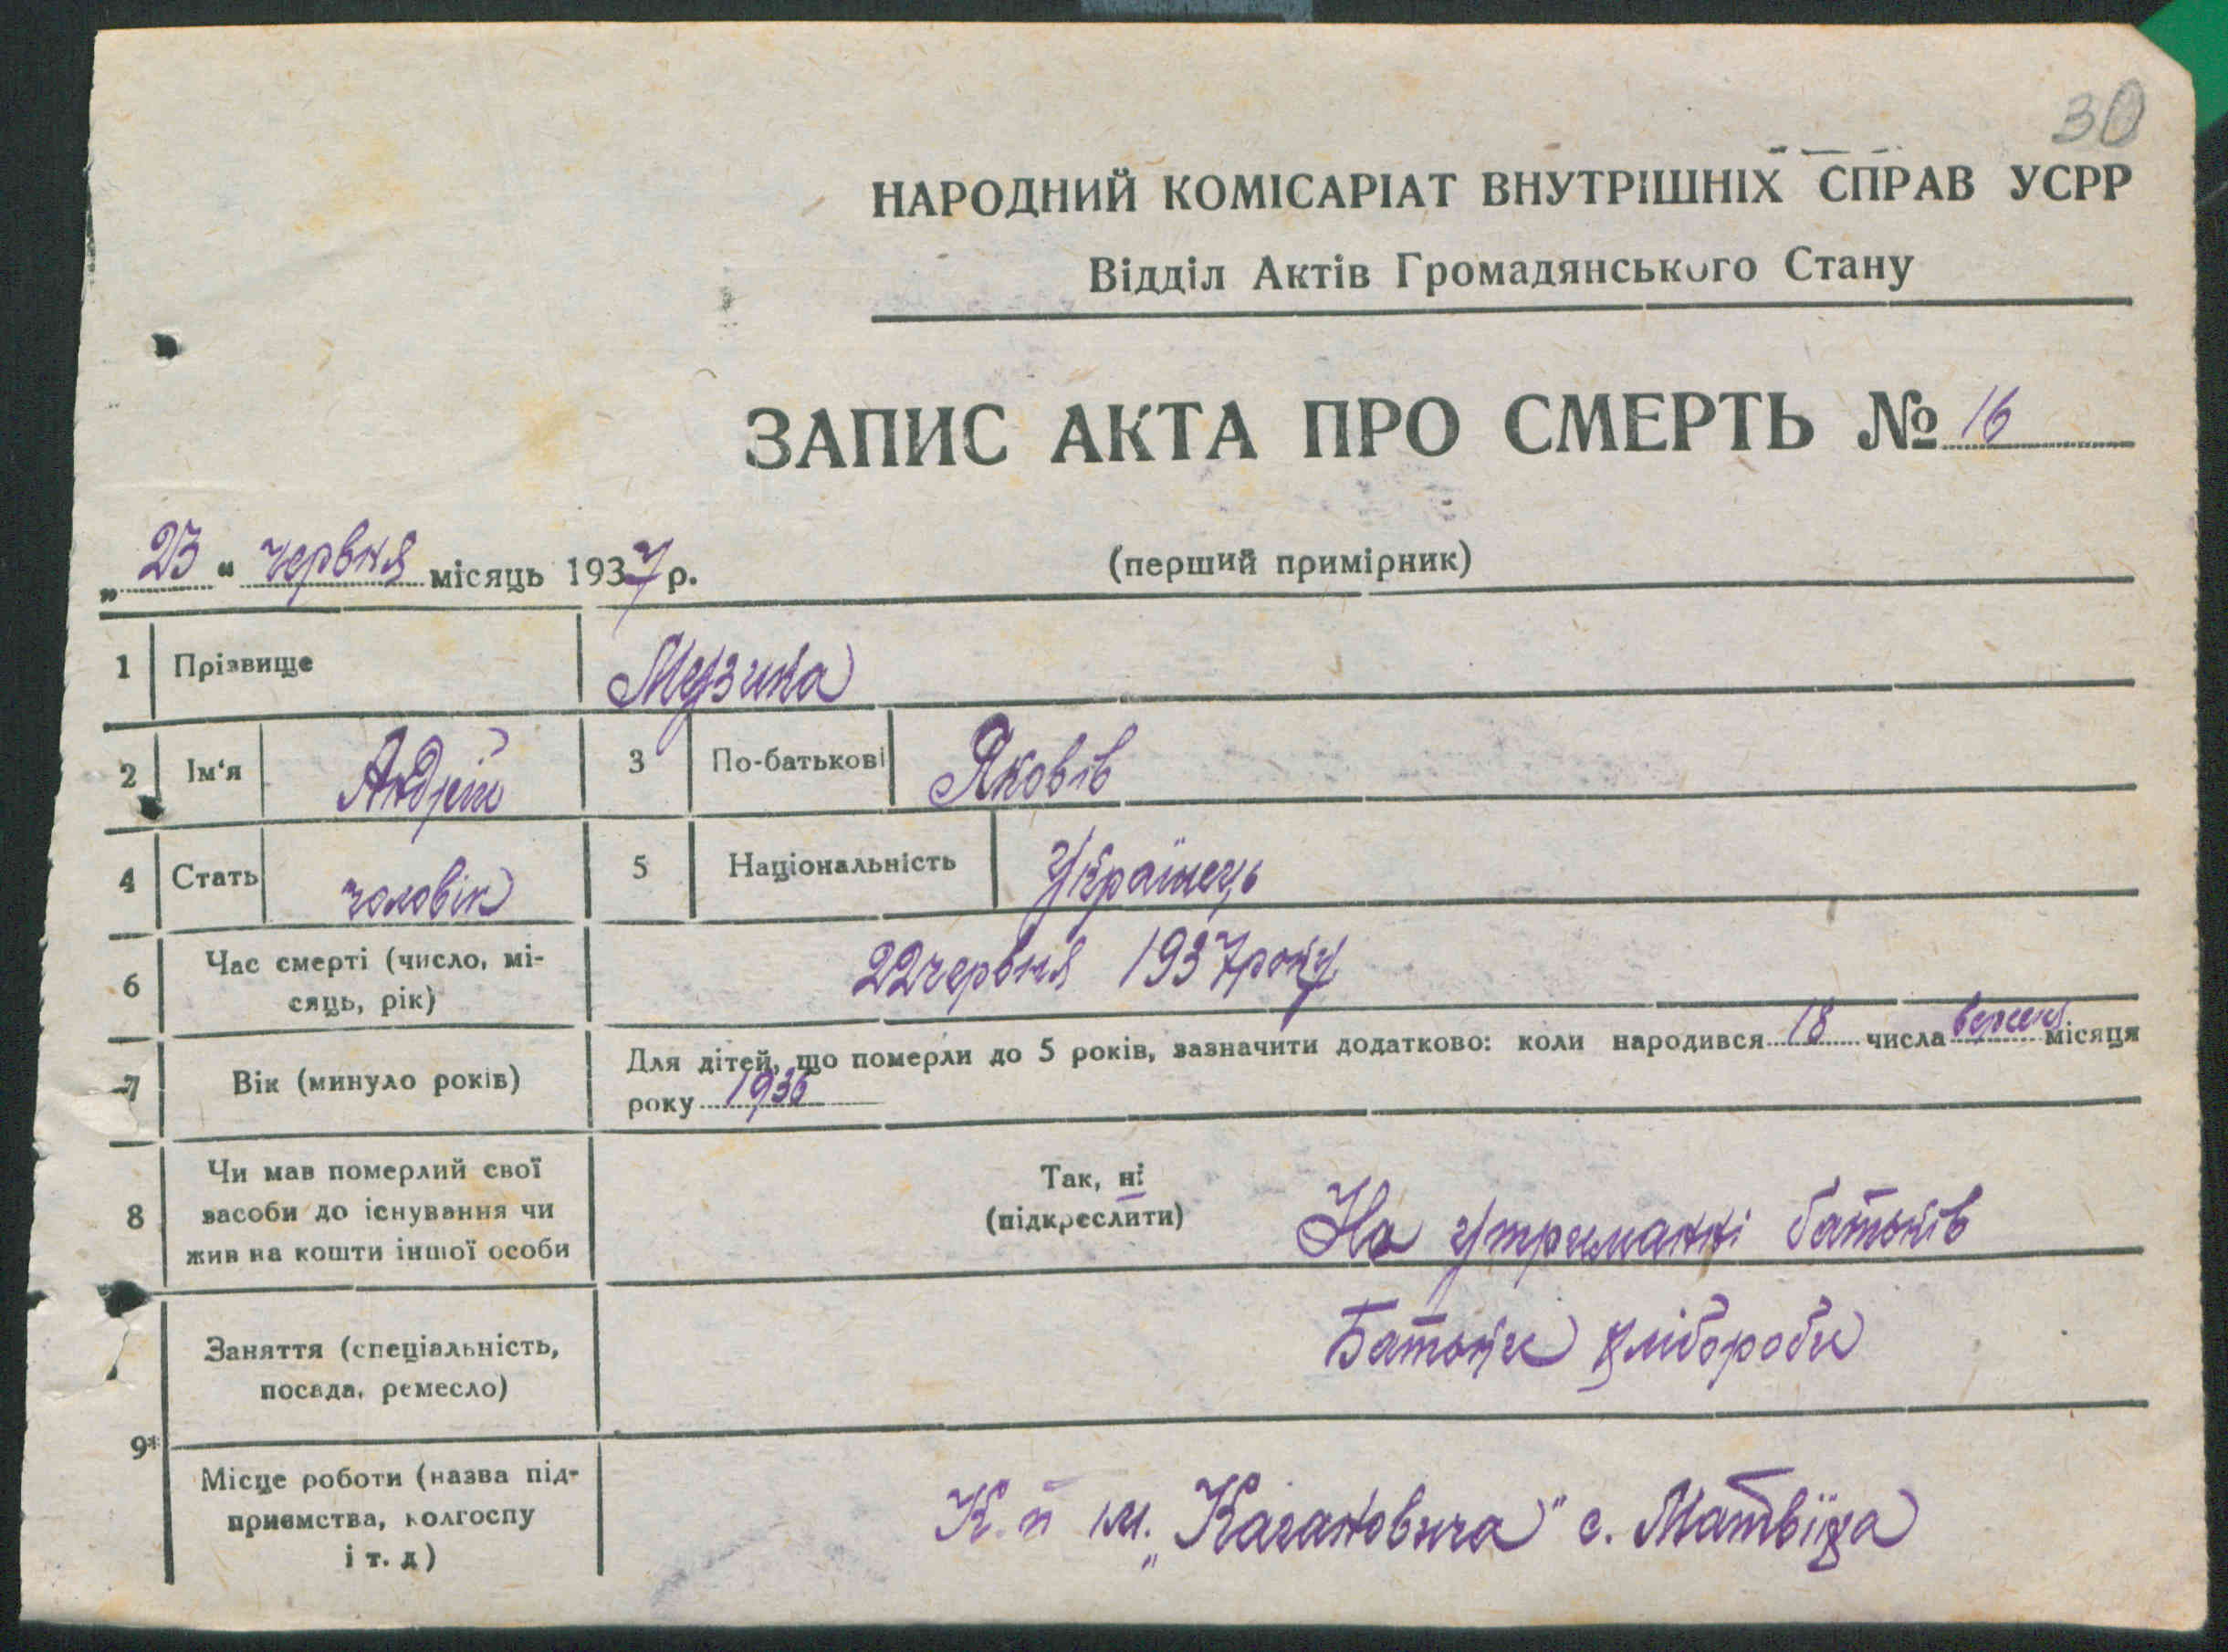 30
НАРОДНИЙ КОМІСАРІАТ ВНУТРІШНІХ СПРАВ УСРР
Відділ Актів Громадянського Стану
ЗАПИС АКТА ПРО СМЕРТЬ № 16
„ 23 “ червня місяць 1937 р. (перший примірник)
1 Прізвище Музика
2 Ім‘я Андрій 3 По-батькові Яковів
4 Стать чоловік 5 Національність Українець
6 Час смерті (число, мі-
сяць, рік) 22 червня 1937 року
7 Вік (минуло років) Для дітей, що померли до 5 років, зазначити додатково: коли народився 18 числа вересня місяця
року 1936
8 Чи мав померлий свої
засоби до існування чи
жив на кошти іншої особи
Так, ні
(підкреслити) На утриманні батьків
9* Заняття (спеціальність,
посада, ремесло) Батьки хлібороби
Місце роботи (назва під-
приємства, колгоспу
і т. д) К. п ім. „Кагановича" с. Матвіїха